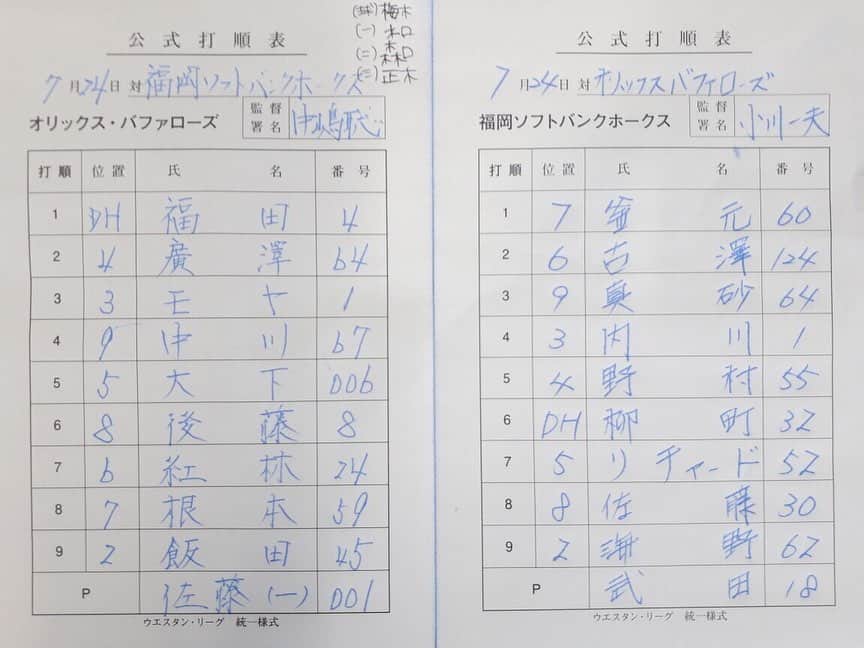 (球)梅木
(一)水口
(二)森口
(三)正木
公式打順表
7月24日 対 福岡ソフトバンクホークス
オリックス・バファローズ 監督署名 中嶋聡
打順 位置 氏名 番号
1 DH 福田 4
2 4 廣澤 64
3 3 モヤ 1
4 9 中川 67
5 5 大下 006
6 8 後藤 8
7 6 紅林 24
8 7 根本 59
9 2 飯田 45
P 佐藤(一) 001
ウエスタン・リーグ 統一様式
公式打順表
7月24日 対 オリックスバファローズ
福岡ソフトバンクホークス 監督署名 小川一夫
打順 位置 氏名 番号
1 7 釜元 60
2 6 古澤 124
3 9 真砂 64
4 3 内川 1
5 4 野村 55
6 DH 柳町 32
7 5 リチャード 52
8 8 佐藤 30
9 2 海野 62
P 武田 18
ウエスタン・リーグ 統一様式